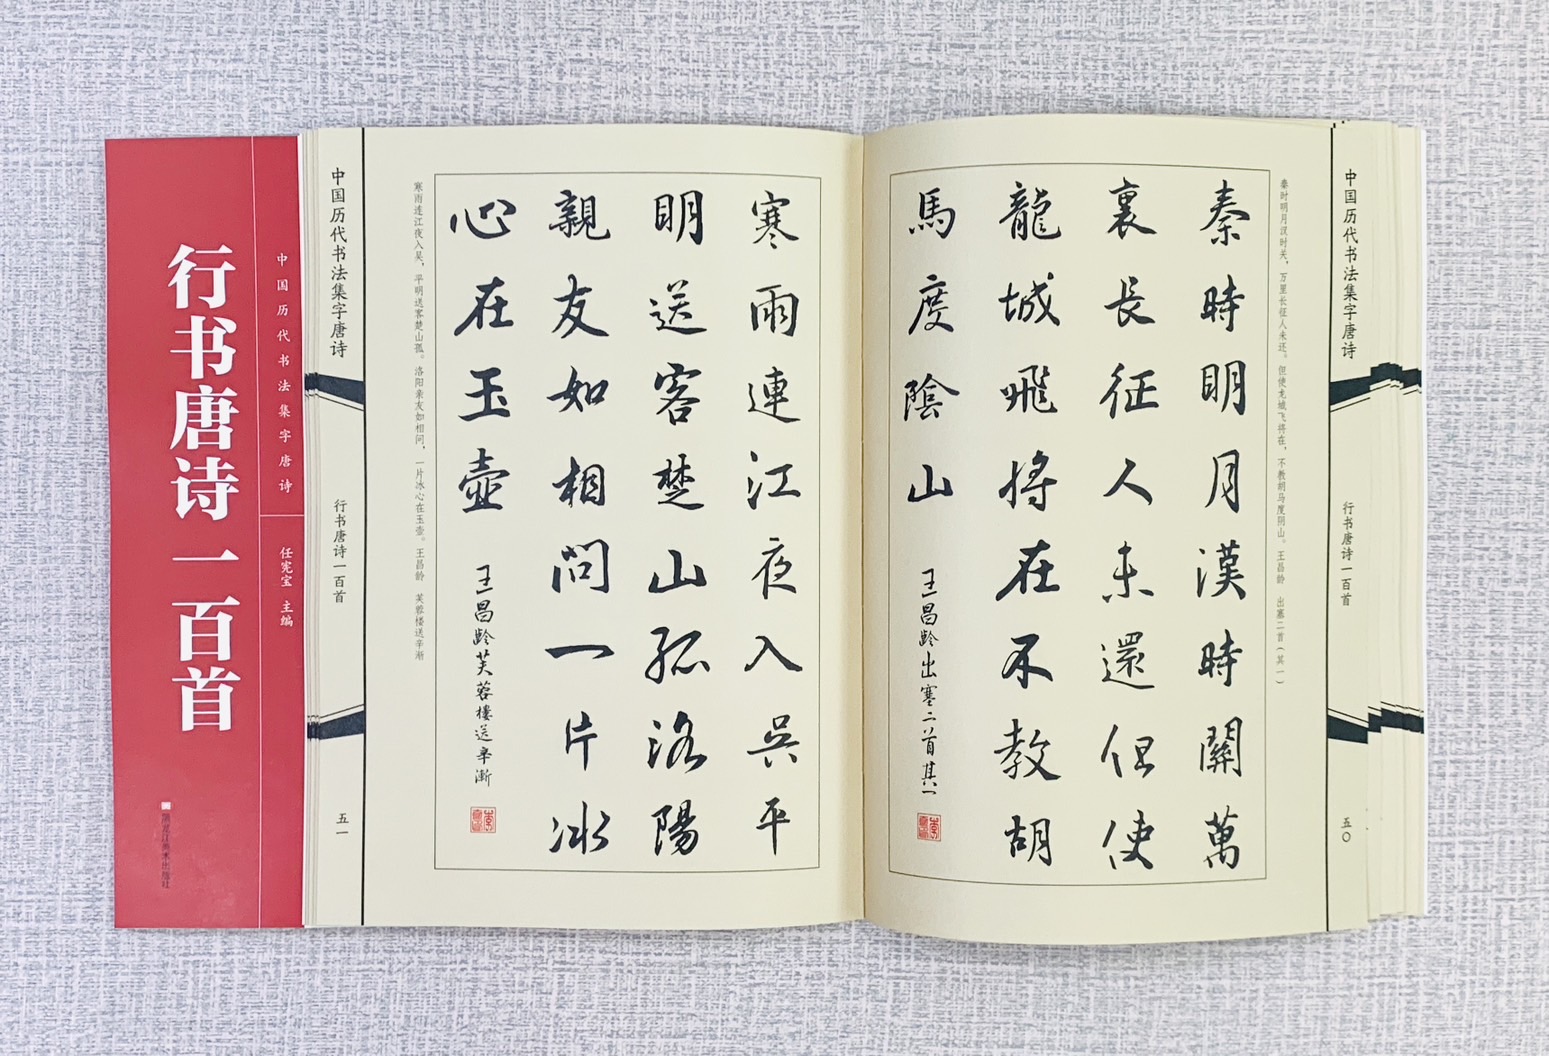 中国历代书法集字唐诗
行书唐诗一百首
五〇
秦时明月汉时关，万里长征人未还。但使龙城飞将在，不教胡马度阴山。王昌龄 出塞二首（其一）
秦時明月漢時關萬
裏長征人未還但使
龍城飛將在不教胡
馬度陰山
王昌龄出塞二首其一
寒雨連江夜入吳平
明送客楚山孤洛陽
親友如相問一片冰
心在玉壺
王昌龄芙蓉樓送辛漸
寒雨连江夜入吴，平明送客楚山孤。洛阳亲友如相问，一片冰心在玉壶。王昌龄 芙蓉楼送辛渐
中国历代书法集字唐诗
行书唐诗一百首
五一
中国历代书法集字唐诗
任宪宝 主编
行书唐诗一百首
黑龙江美术出版社